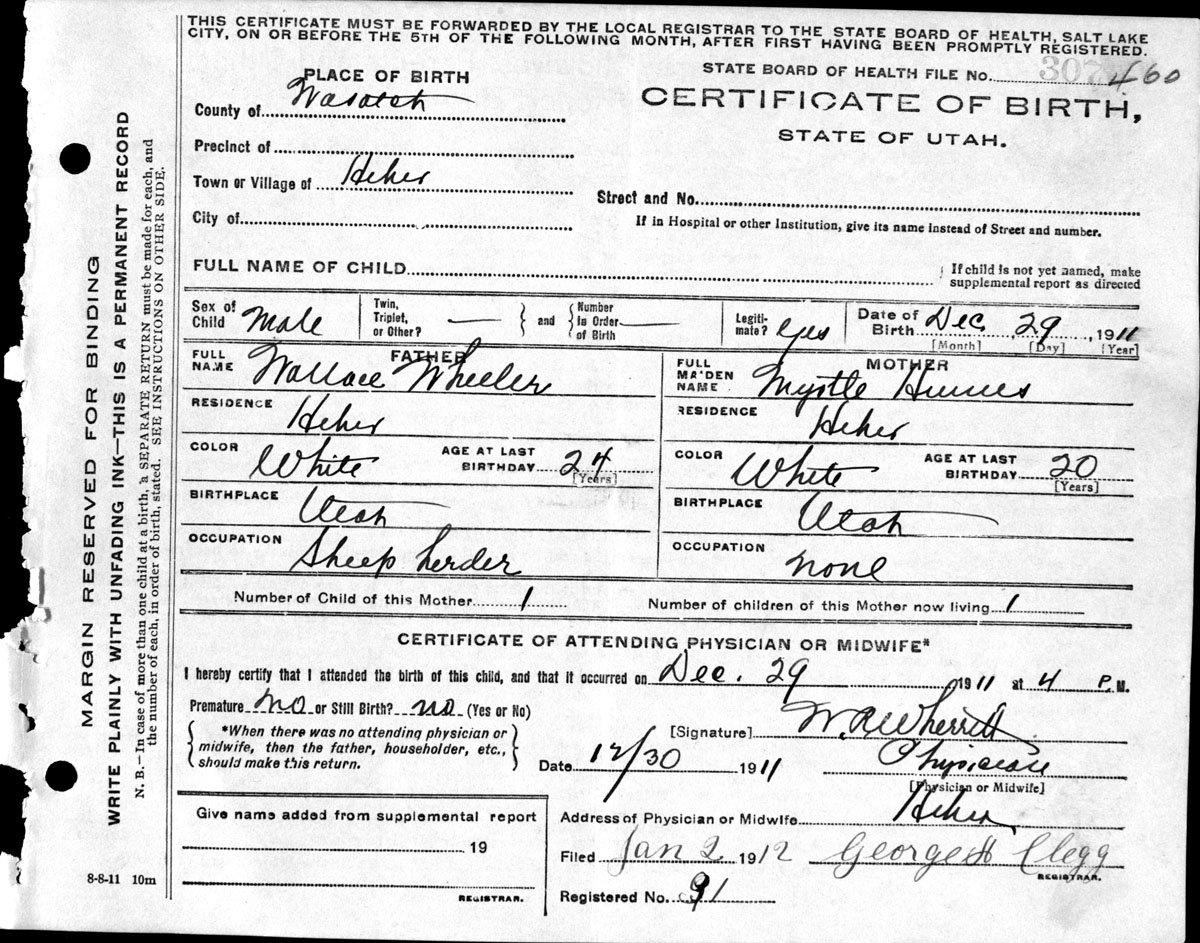 THIS CERTIFICATE MUST BE FORWARDED BY THE LOCAL REGISTRAR TO THE STATE BOARD OF HEALTH, SALT LAKE
CITY, ON OR BEFORE THE 5TH OF THE FOLLOWING MONTH, AFTER FIRST HAVING BEEN PROMPTLY REGISTERED.
PLACE OF BIRTH
STATE BOARD OF HEALTH FILE No. 307 460
County of Wasatch
CERTIFICATE OF BIRTH,
STATE OF UTAH.
Precinct of
Town or Village of Heber
Street and No.
City of
If in Hospital or other Institution, give its name instead of Street and number.
FULL NAME OF CHILD
If child is not yet named, make
supplemental report as directed
Sex of Child Male Twin, Triplet, or Other? — and Number in Order of Birth — Legiti-mate? yes Date of Birth Dec. 29, 1911
[Month] [Day] [Year]
FATHER MOTHER
FULL NAME Wallace Wheeler FULL MAIDEN NAME Myrtle
RESIDENCE Heber RESIDENCE Heber
COLOR White AGE AT LAST BIRTHDAY 24 [Years] COLOR White AGE AT LAST BIRTHDAY 20 [Years]
BIRTHPLACE Utah BIRTHPLACE Utah
OCCUPATION Sheep herder OCCUPATION none
Number of Child of this Mother 1 Number of children of this Mother now living 1
CERTIFICATE OF ATTENDING PHYSICIAN OR MIDWIFE*
I hereby certify that I attended the birth of this child, and that it occurred on Dec. 29 1911 at 4 P.M.
Premature no or Still Birth? no (Yes or No)
*When there was no attending physician or
midwife, then the father, householder, etc.,
should make this return.
[Signature] W. R. Wherritt
Date 12/30 1911 Physician
[Physician or Midwife]
Give name added from supplemental report
Address of Physician or Midwife Heber
19
Filed Jan 2 1912 George H Clegg
REGISTRAR.
Registered No. 91
REGISTRAR.
8-8-11 10m
MARGIN RESERVED FOR BINDING
WRITE PLAINLY WITH UNFADING INK—THIS IS A PERMANENT RECORD
N. B.—In case of more than one child at a birth, a SEPARATE RETURN must be made for each, and
the number of each, in order of birth, stated. SEE INSTRUCTIONS ON OTHER SIDE.